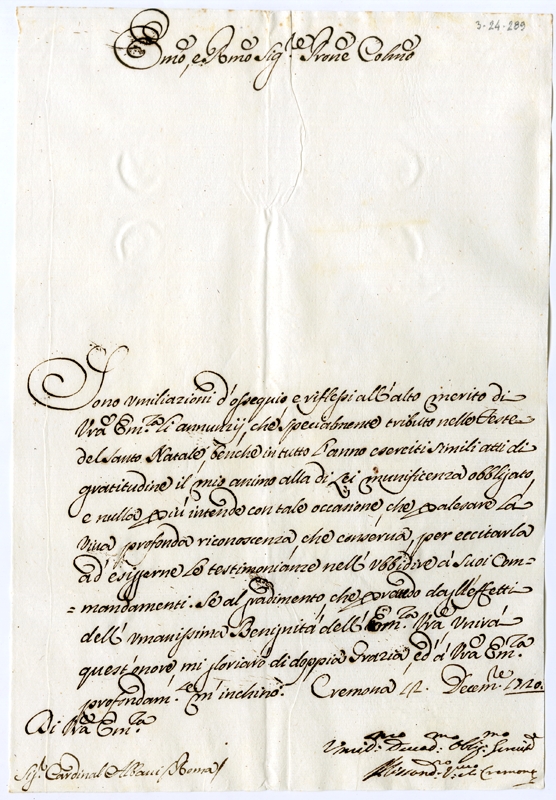 3-24-289
Emo, e Rmo Sig.re Prone Colmo
Sono umiliazioni d'ossequio e riflessi all'alto merito di
Vra Em.za li annunzij, che specialmente tributo nelle Feste
del Santo Natale, benche in tutto l'anno eserciti simili atti di
gratitudine il mio animo alla di Lei munificenza obbligato,
e nulla più intende con tale occasione, che palesare la
viva profonda riconoscenza, che conserva, per eccitarla
ad esiggerne le testimonianze nell'ubbidire a' suoi Com-
=mandamenti. Se al gradimento, che dall'effetti
dell'umanissima Benignità dell'Em.za Vra unirà
quest'onore mi gloriarò di doppia Grazia, ed à Vra Em.za
profondam.te m'inchino. Cremona 12. Decem.re 1720.
Di Vra Em.za
Umil.mo Devot.mo Oblig.mo Servit.e
Alessand.ro Vesc.o di Cremona
Sig.r Cardinal Albani Roma